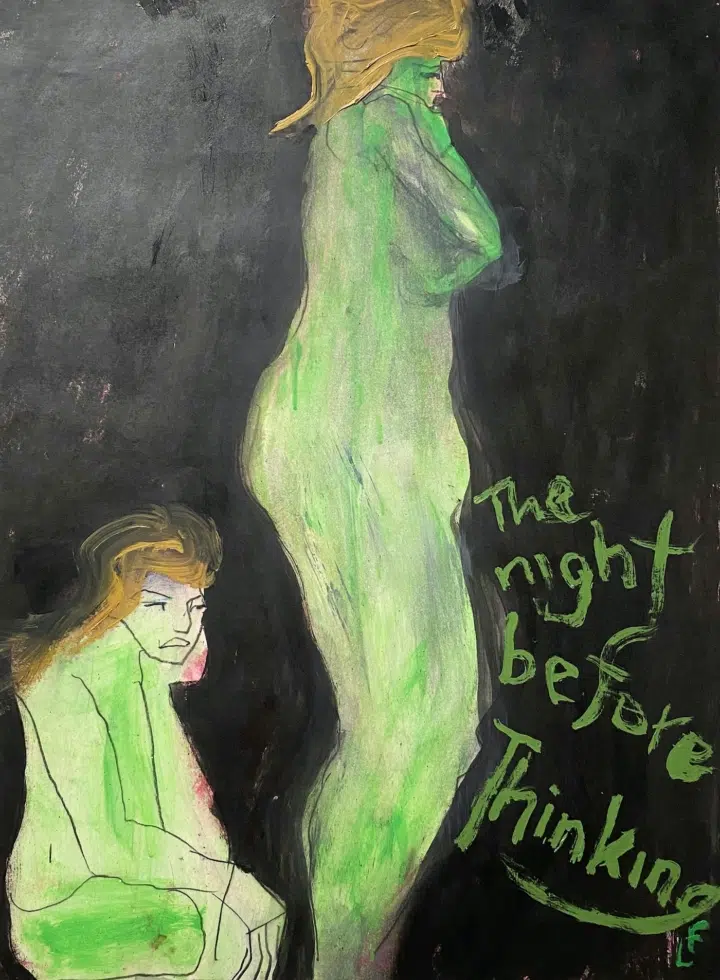 The
night
before
Thinking
LF